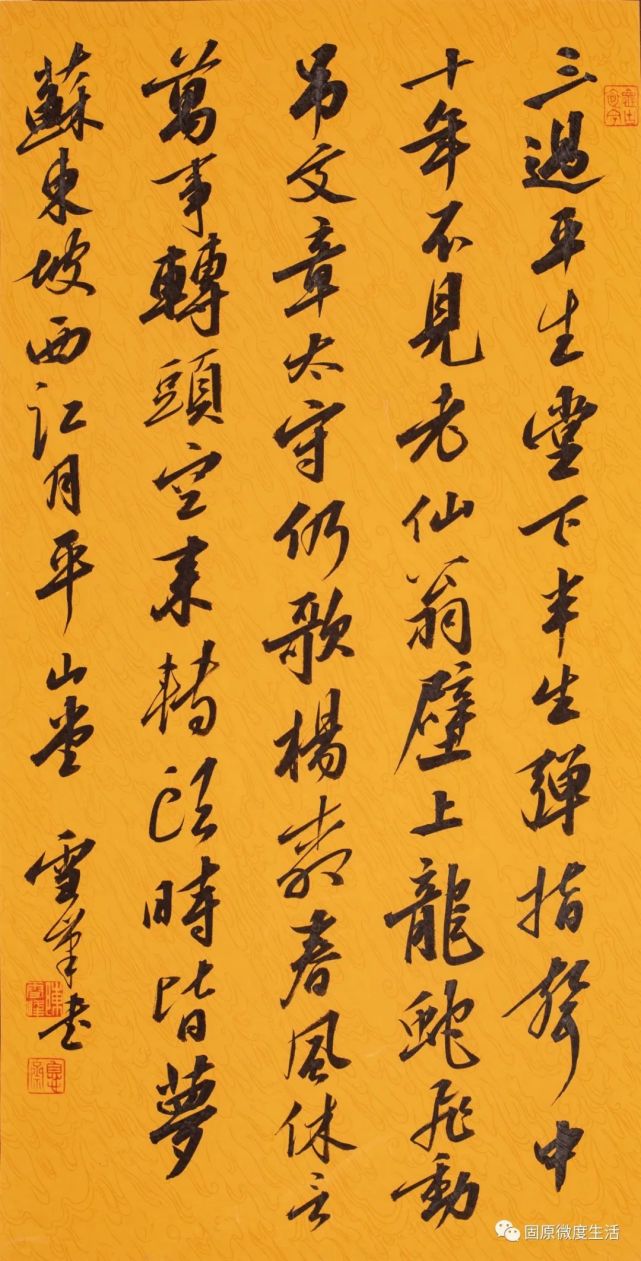 三過平生堂下半生彈指聲中
十年不見老仙翁壁上龍蛇飛動
吊文章太守仍歌楊柳春風休言
萬事轉頭空未轉頭時皆夢
蘇東坡西江月平山堂 雪書
固原微度生活